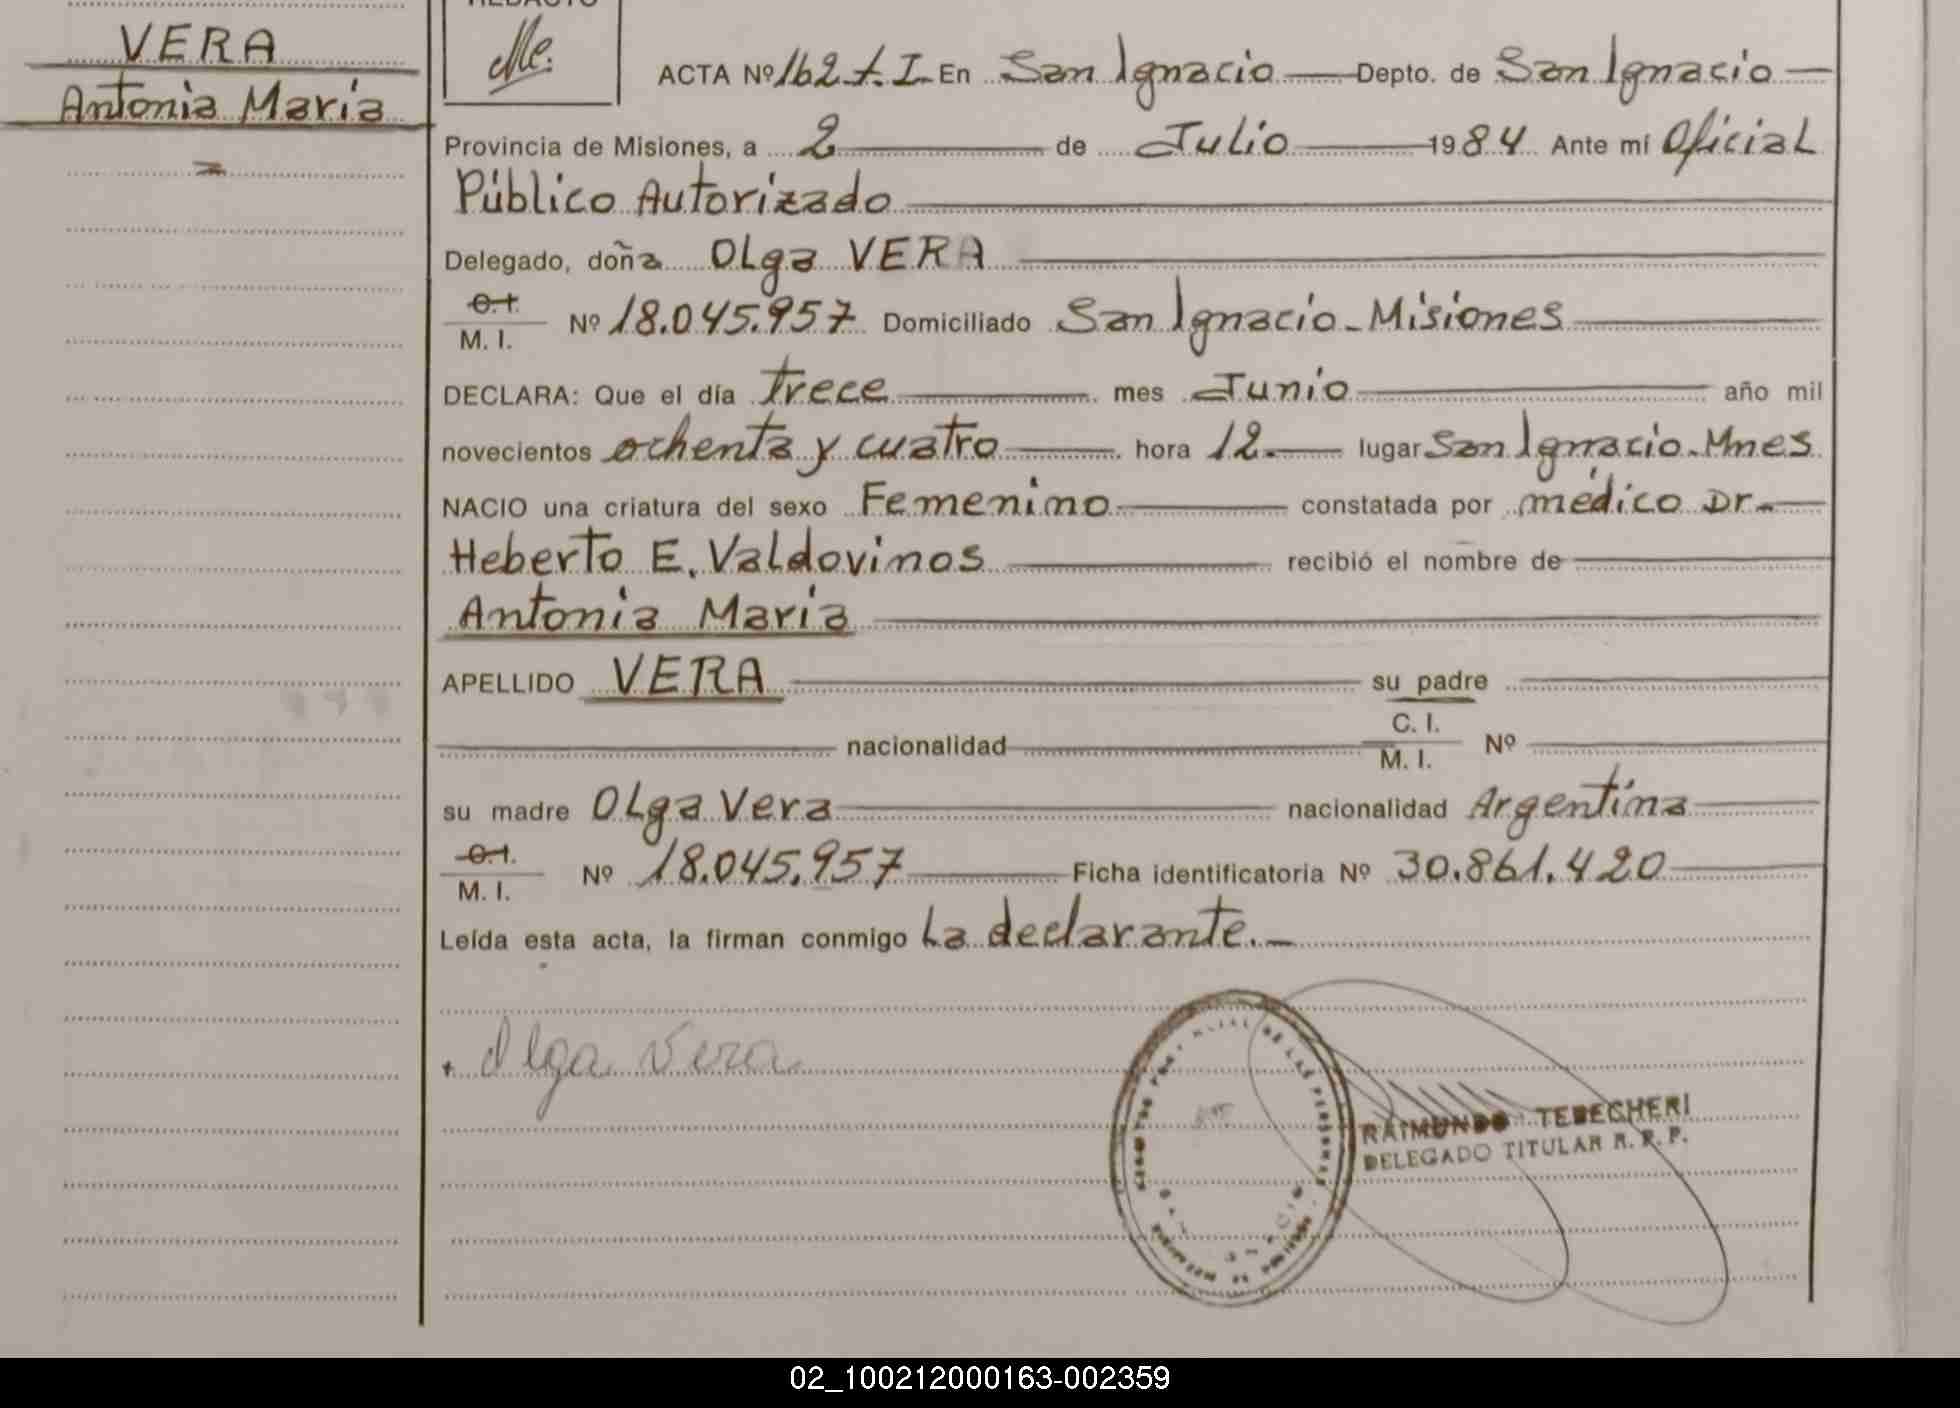 VERA
Antonia Maria
REDACTO
Me.
ACTA Nº 162 t. I En San Ignacio Depto. de San Ignacio
Provincia de Misiones, a 2 de Julio 1984 Ante mí Oficial
Público Autorizado
Delegado, doña Olga VERA
C. I.
M. I. Nº 18.045.957 Domiciliado San Ignacio - Misiones
DECLARA: Que el día trece mes Junio año mil
novecientos ochenta y cuatro hora 12. lugar San Ignacio - Mnes
NACIO una criatura del sexo Femenino constatada por médico Dr.
Heberto E. Valdovinos recibió el nombre de
Antonia Maria
APELLIDO VERA su padre
nacionalidad C. I. M. I. Nº
su madre Olga Vera nacionalidad Argentina
C. I.
M. I. Nº 18.045.957 Ficha identificatoria Nº 30.861.420
Leída esta acta, la firman conmigo La declarante.-
Olga Vera
DE LAS PERSONAS
RAIMUNDO TEBECHERI
DELEGADO TITULAR R. P. P.
02_100212000163-002359